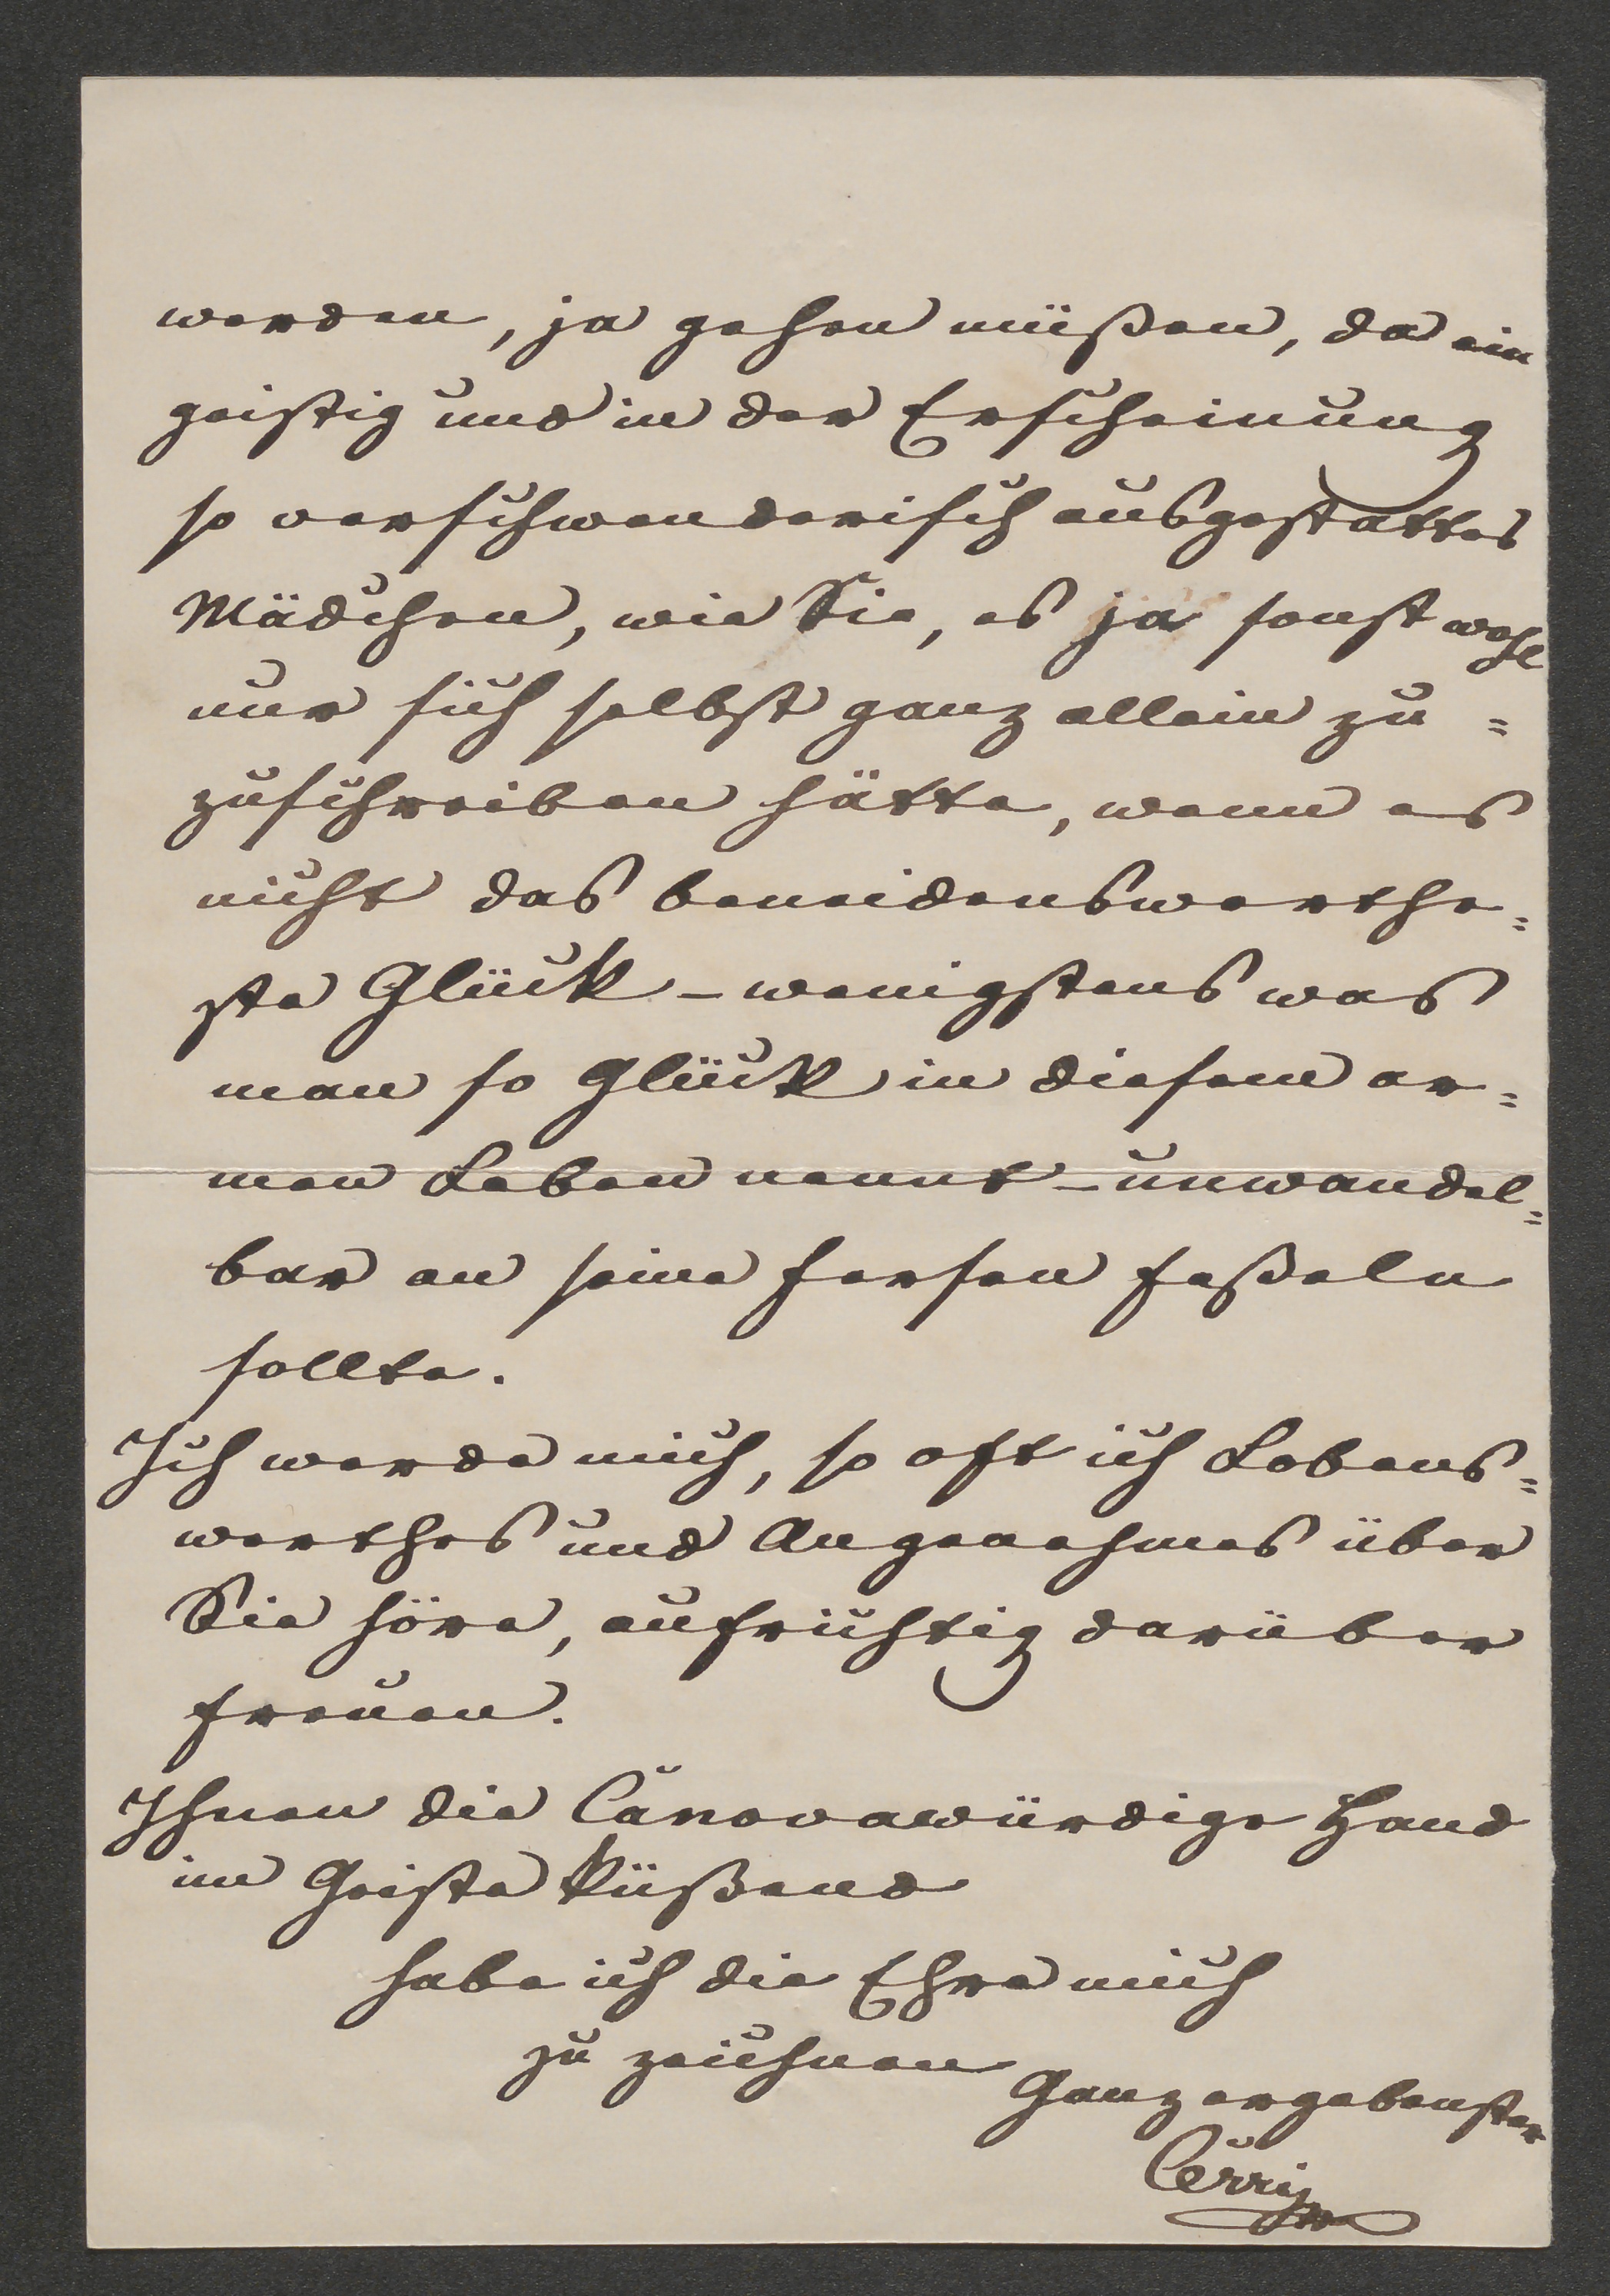 werden, ja gehen müßen, da ein
geistig und in der Erscheinung
so verschwenderisch ausgestattes
Mädchen, wie Sie, es ja sonst wohl
nur sich selbst ganz allein zu=
zuschreiben hätte, wenn es
nicht das beneidenswerthe=
ste Glück – wenigstens was
man so Glück in diesem ar=
men Leben nennt – unwandel=
bar an seine Fersen feßeln
sollte.
Ich werde mich, so oft ich Lobens=
werthes und Angenehmes über
Sie höre, aufrichtig darüber
freuen.
Ihnen die Canovawürdige Hand
im Geiste küßend
habe ich die Ehre mich
zu zeichnen
Ganz ergebenster
Cerri